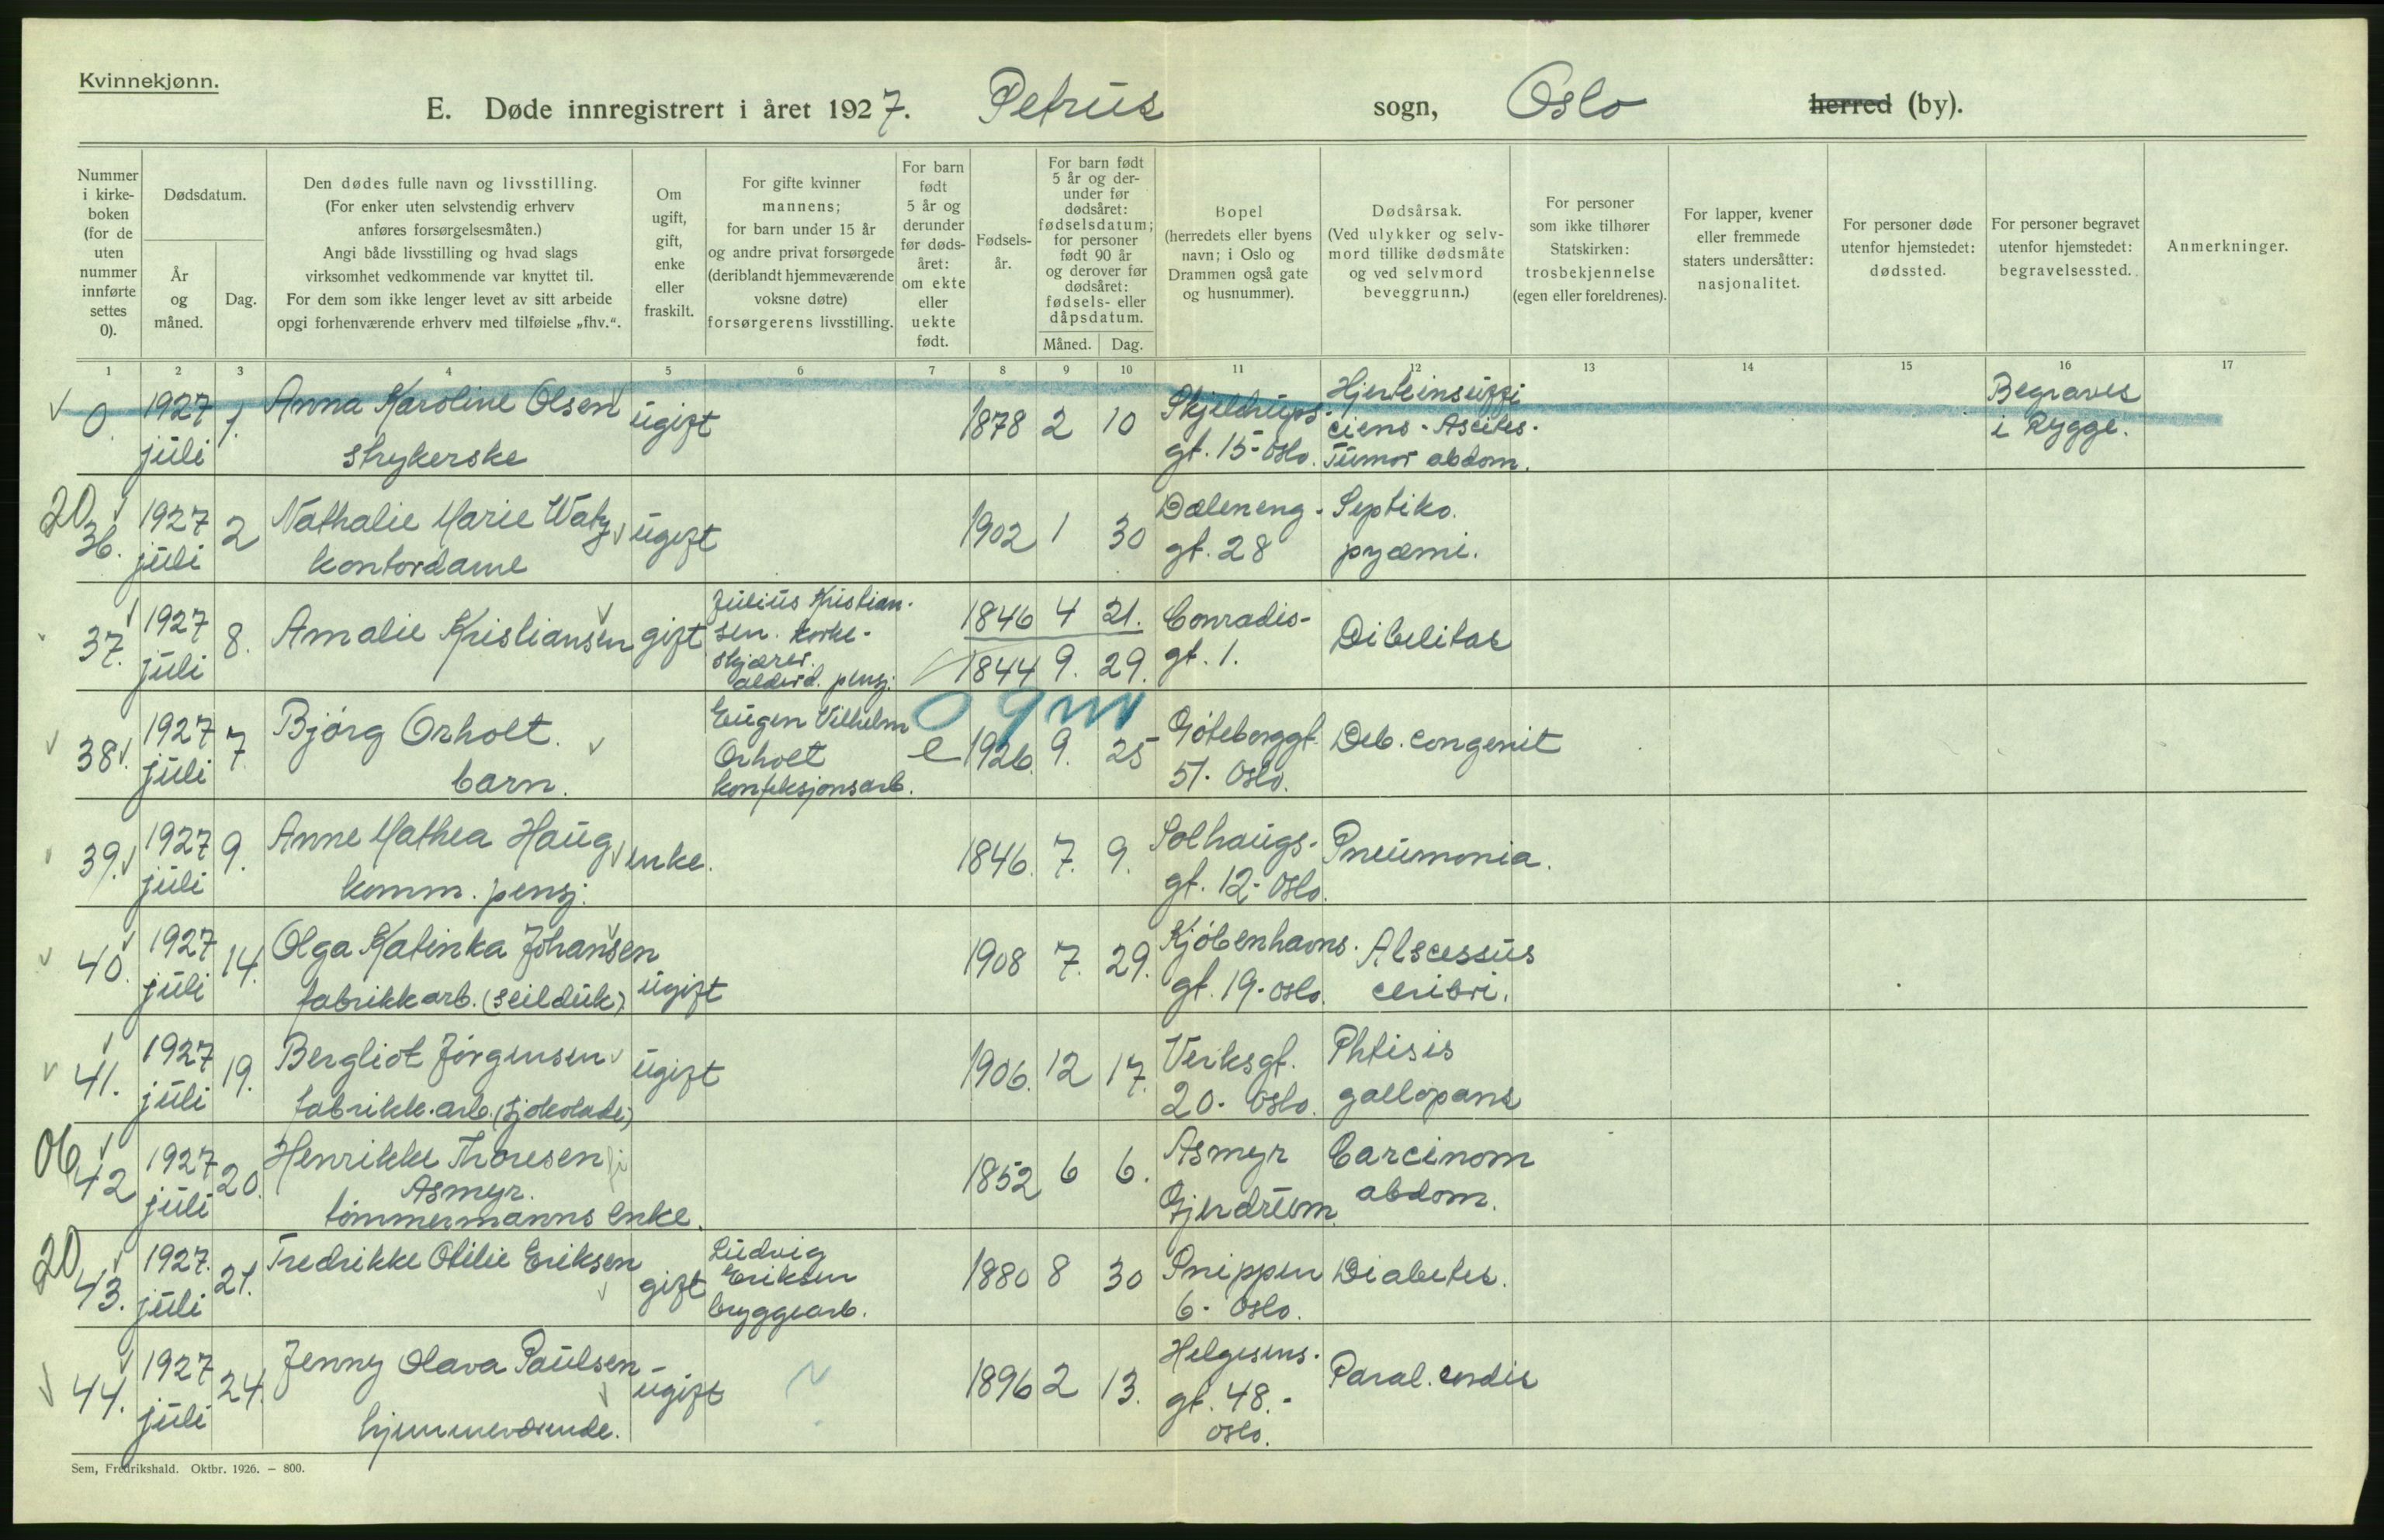 Kvinnekjønn.
E. Døde innregistrert i året 1927. Petrus sogn, Oslo herred (by).
Nummer i kirke- boken (for de uten nummer innførte settes 0).
Dødsdatum.
År og måned.
Dag.
Den dødes fulle navn og livsstilling.
(For enker uten selvstendig erhverv
anføres forsørgelsesmåten.)
Angi både livsstilling og hvad slags
virksomhet vedkommende var knyttet til.
For dem som ikke lenger levet av sitt arbeide
opgi forhenværende erhverv med tilføielse „fhv.“.
Om ugift, gift, enke eller fraskilt.
For gifte kvinner
mannens;
for barn under 15 år
og andre privat forsørgede
(deriblandt hjemmeværende
voksne døtre)
forsørgerens livsstilling.
For barn født 5 år og derunder før døds- året: om ekte eller uekte født.
Fødsels- år.
For barn født 5 år og der- under før dødsåret: fødselsdatum; for personer født 90 år og derover før dødsåret: fødsels- eller dåpsdatum.
Måned. Dag.
Bopel
(herredets eller byens
navn; i Oslo og
Drammen også gate
og husnummer).
Dødsårsak.
(Ved ulykker og selv-
mord tillike dødsmåte
og ved selvmord
beveggrunn.)
For personer
som ikke tilhører
Statskirken:
trosbekjennelse
(egen eller foreldrenes).
For lapper, kvener
eller fremmede
staters undersåtter:
nasjonalitet.
For personer døde
utenfor hjemstedet:
dødssted.
For personer begravet
utenfor hjemstedet:
begravelsessted.
Anmerkninger.
1 2 3 4 5 6 7 8 9 10 11 12 13 14 15 16 17
0. 1927 juli 1. Anna Karoline Olsen ugift 1878 2 10 Skjeldrups- Hjerteinsuffi- Begraves
strykerske gt. 15 - Oslo. ciens - Ascites - Tumor abdom. i Rygge.
20 36. 1927 juli 2 Nathalie Marie Watz ugift 1902 1 30 Dæleneng- Septiko.
kontordame gt. 28 pyæmi.
37. 1927 juli 8. Amalie Kristiansen gift Julius Kristian- 1846 4 21. Conradis- Dibelitas
sen. korke- skjærer. alderd. pensj. 1844 9. 29. gt. 1.
0 9 m
38. 1927 juli 7. Bjørg Orholt. Eugen Vilhelm e 1926. 9. 25 Gøteborggt. Deb. congenit
barn. Orholt konfeksjonsarb. 51. Oslo.
39. 1927 juli 9. Anne Mathea Haug enke. 1846. 7. 9. Solhaugs- Pneumonia.
komm. pensj. gt. 12 - Oslo.
40. 1927 juli 14. Olga Katinka Johansen ugift 1908 7. 29. Kjøbenhavns- Abscessus
fabrikkarb. (seilduk) gt. 19 - Oslo. ceribri.
41. 1927 juli 19. Bergliot Jørgensen ugift 1906. 12 17. Verksgt. Phtisis
fabrikk. arb. (sjokolade) 20 - Oslo. gallopans
06 42 1927 juli 20. Henrikke Thoresen 1852 6 6. Asmyr Carcinom
Asmyr. Gjerdrum abdom.
tømmermanns enke.
20 43. 1927. juli 21. Fredrikke Otilie Eriksen gift Ludvig 1880 8 30 Snippen Diabetes.
Eriksen bryggearb. 6 - Oslo.
44. 1927 juli 24. Jenny Olava Paulsen ugift 1896 2 13. Helgesens- Paral. cordis
hjemmeværende. gt. 48. - Oslo.
Sem, Fredrikshald. Oktbr. 1926. – 800.